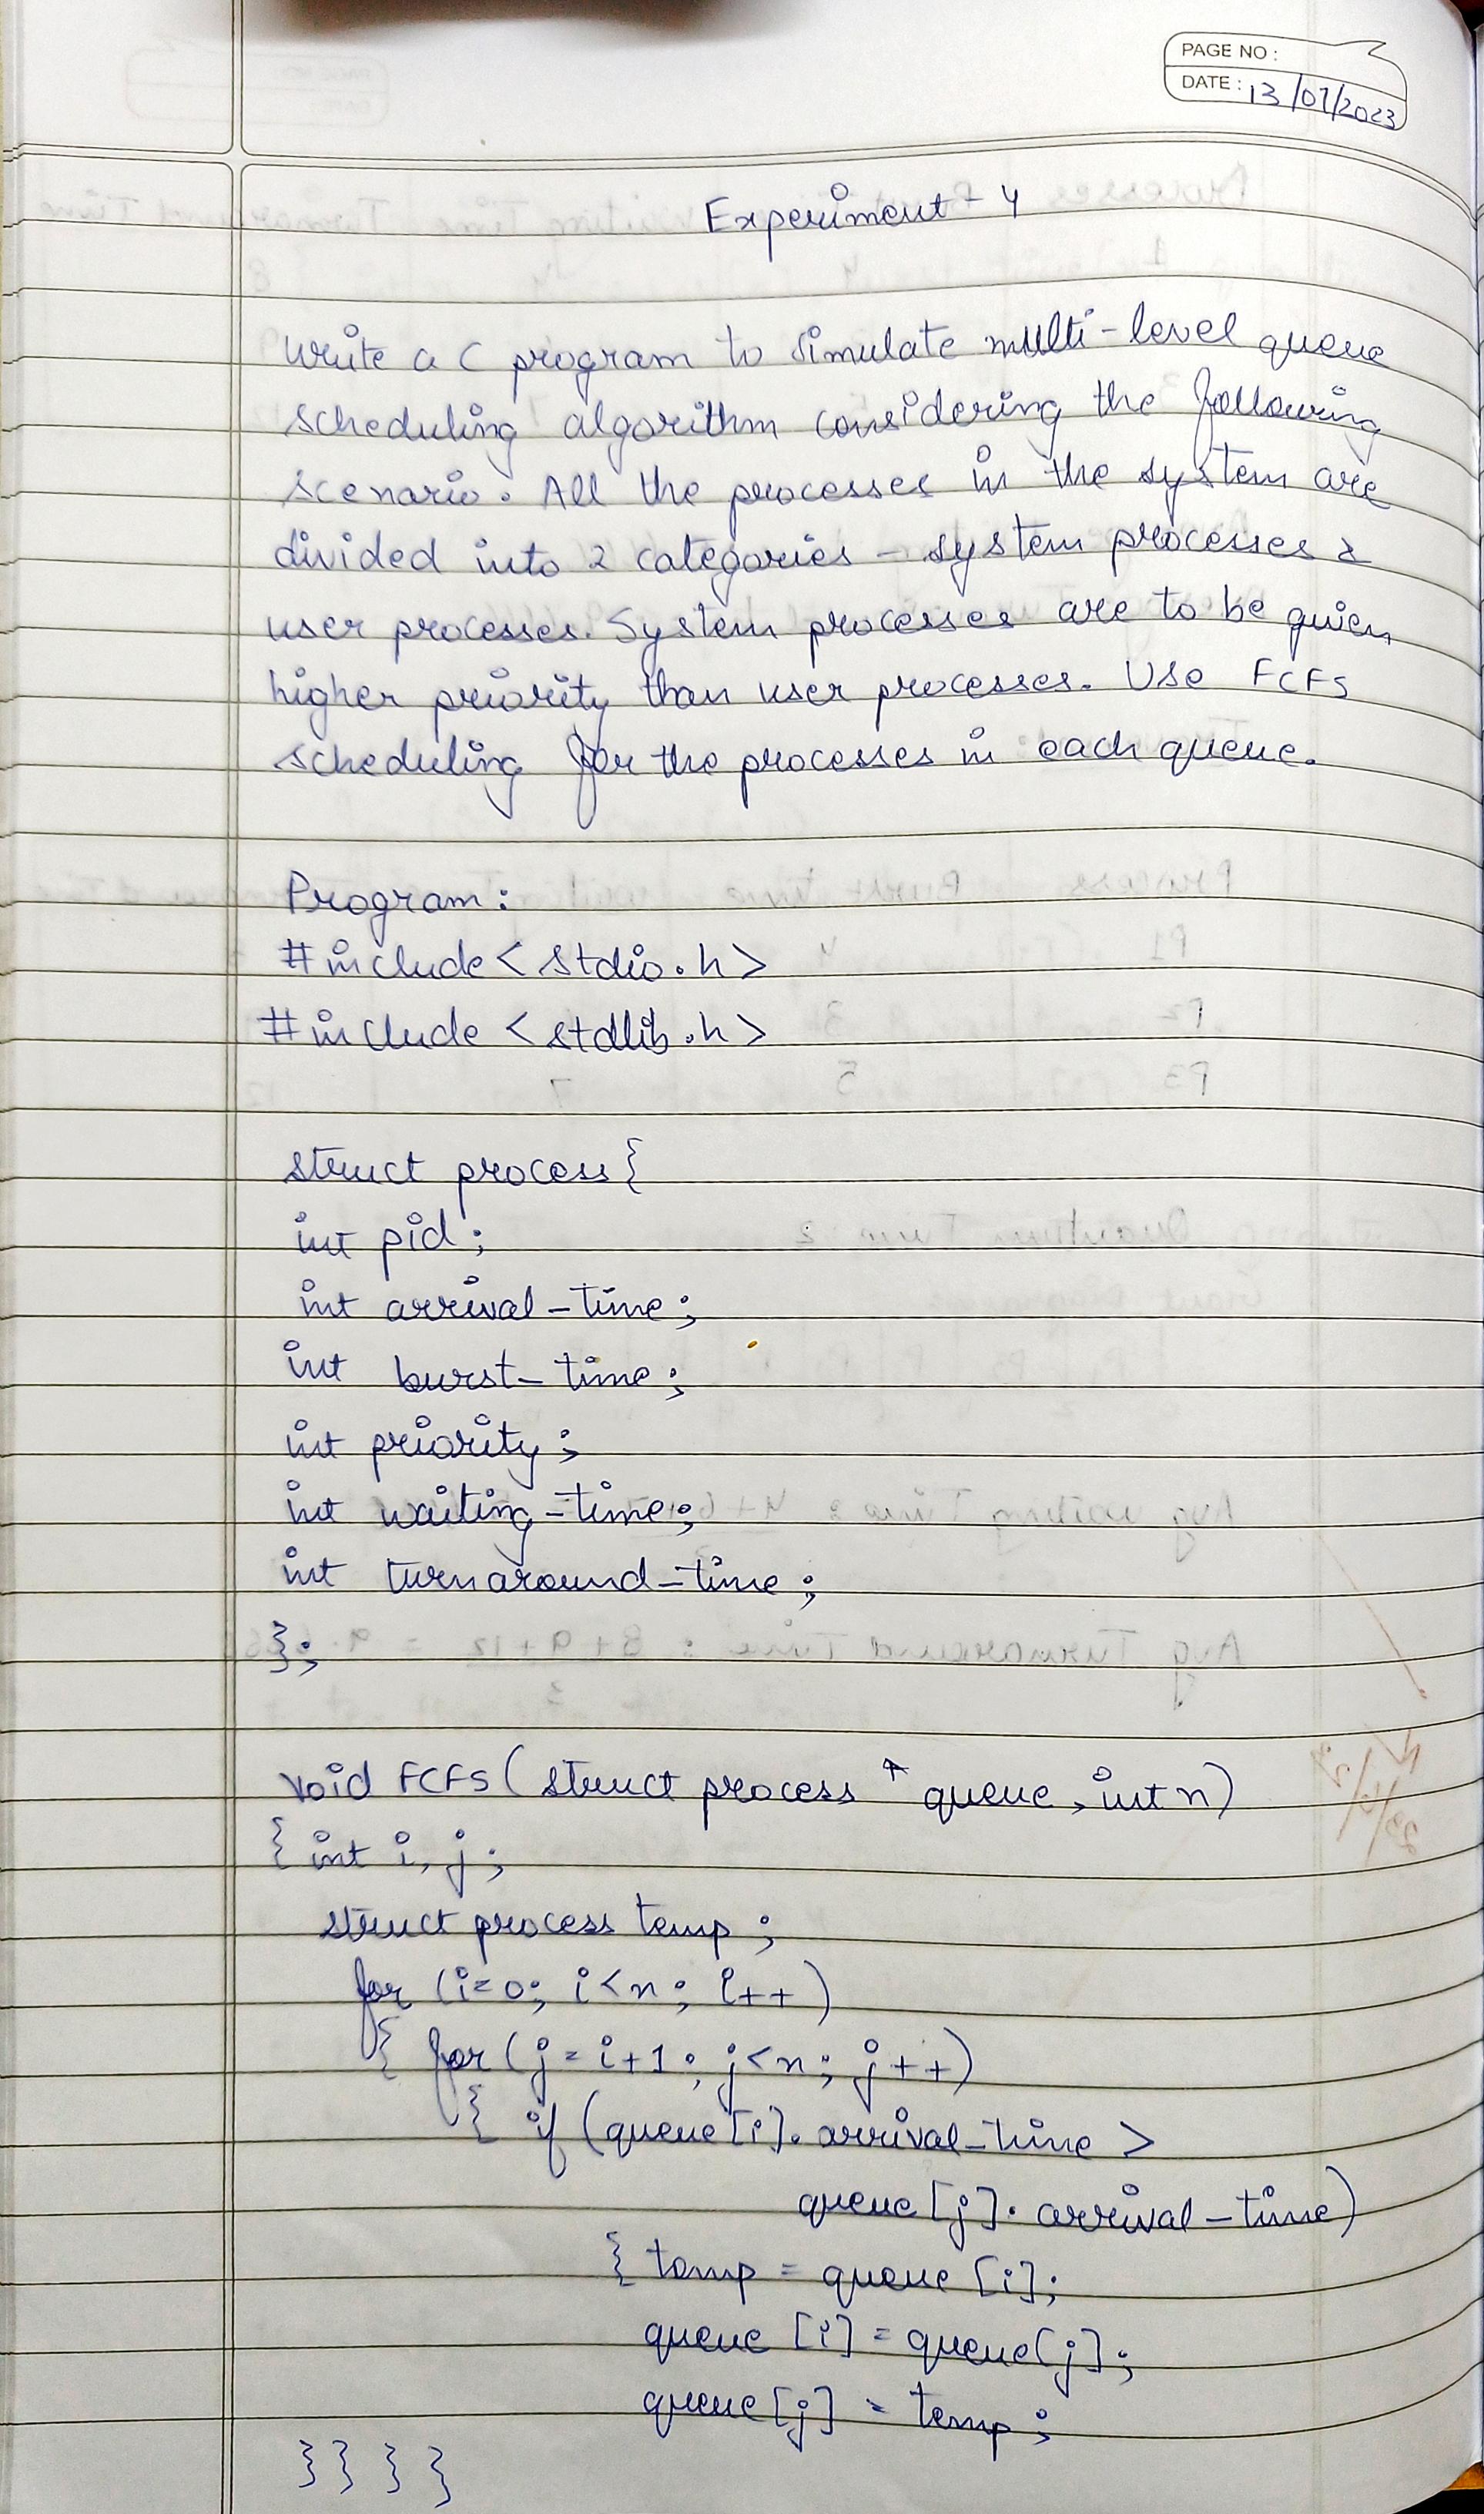 PAGE NO :
DATE : 13/07/2023
Experiment - 4
Write a C program to simulate multi-level queue
scheduling algorithm considering the following
scenario. All the processes in the system are
divided into 2 categories - system processes &
user processes. System processes are to be given
higher priority than user processes. Use FCFS
scheduling for the processes in each queue.
Program:
#include <stdio.h>
#include <stdlib.h>
struct process {
int pid;
int arrival_time;
int burst_time;
int priority;
int waiting_time;
int turnaround_time;
};
void FCFS (struct process * queue, int n)
{ int i, j;
struct process temp;
for (i=0; i<n; i++)
{ for (j=i+1; j<n; j++)
{ if (queue[i].arrival_time >
queue[j].arrival_time)
{ temp = queue [i];
queue [i] = queue[j];
queue[j] = temp;
} } } }